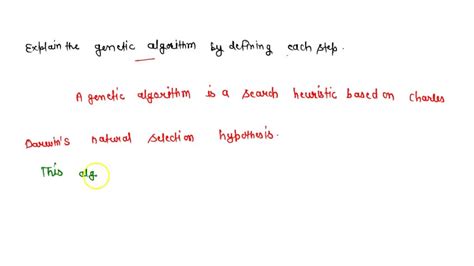 Explain the genetic algorithm by defining each step.
A genetic algorithm is a search heuristic based on Charles
Darwin's natural selection hypothesis.
This alg.